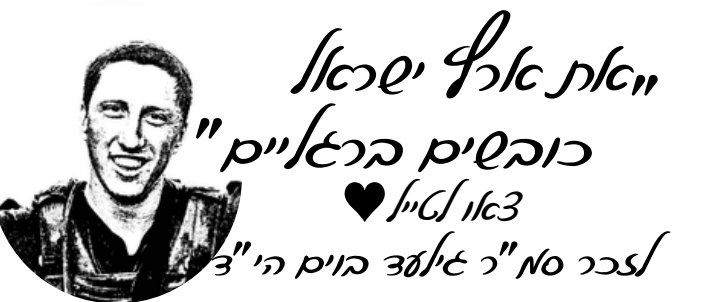 "את ארץ ישראל
כובשים ברגליים"
צאו לטייל♥
לזכר סמ"ר גילעד בוים הי"ד